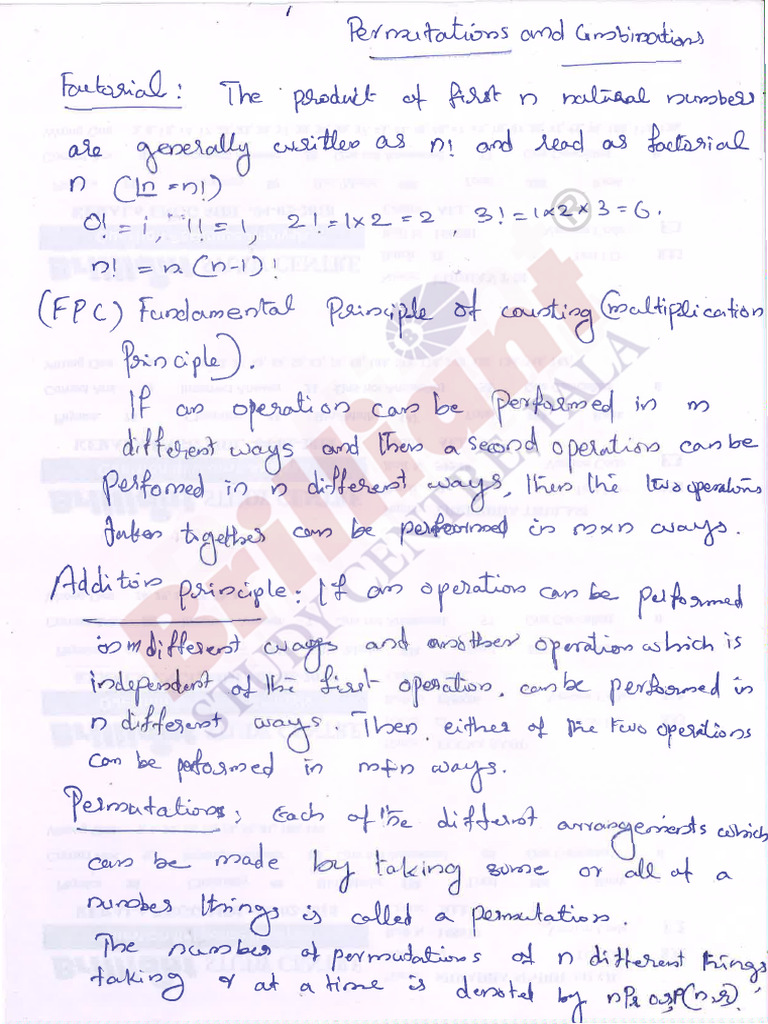 Permutations and Combinations
Factorial: The product of first n natural numbers
are generally written as n! and read as factorial
n (|n = n!)
0! = 1, 1! = 1, 2! = 1×2 = 2, 3! = 1×2×3 = 6.
n! = n (n-1)!
(FPC) Fundamental Principle of counting (multiplication
Principle).
If an operation can be performed in m
different ways and then a second operation can be
performed in n different ways, then the two operations
taken together can be performed in m×n ways.
Addition principle: If an operation can be performed
in m different ways and another operation which is
independent of the first operation, can be performed in
n different ways. Then either of the two operations
can be performed in m+n ways.
Permutations: Each of the different arrangements which
can be made by taking some or all of a
number things is called a permutation.
The number of permutations of n different things
taking r at a time is denoted by nPr or P(n,r).
Brilliant ®
STUDY CENTRE PALA